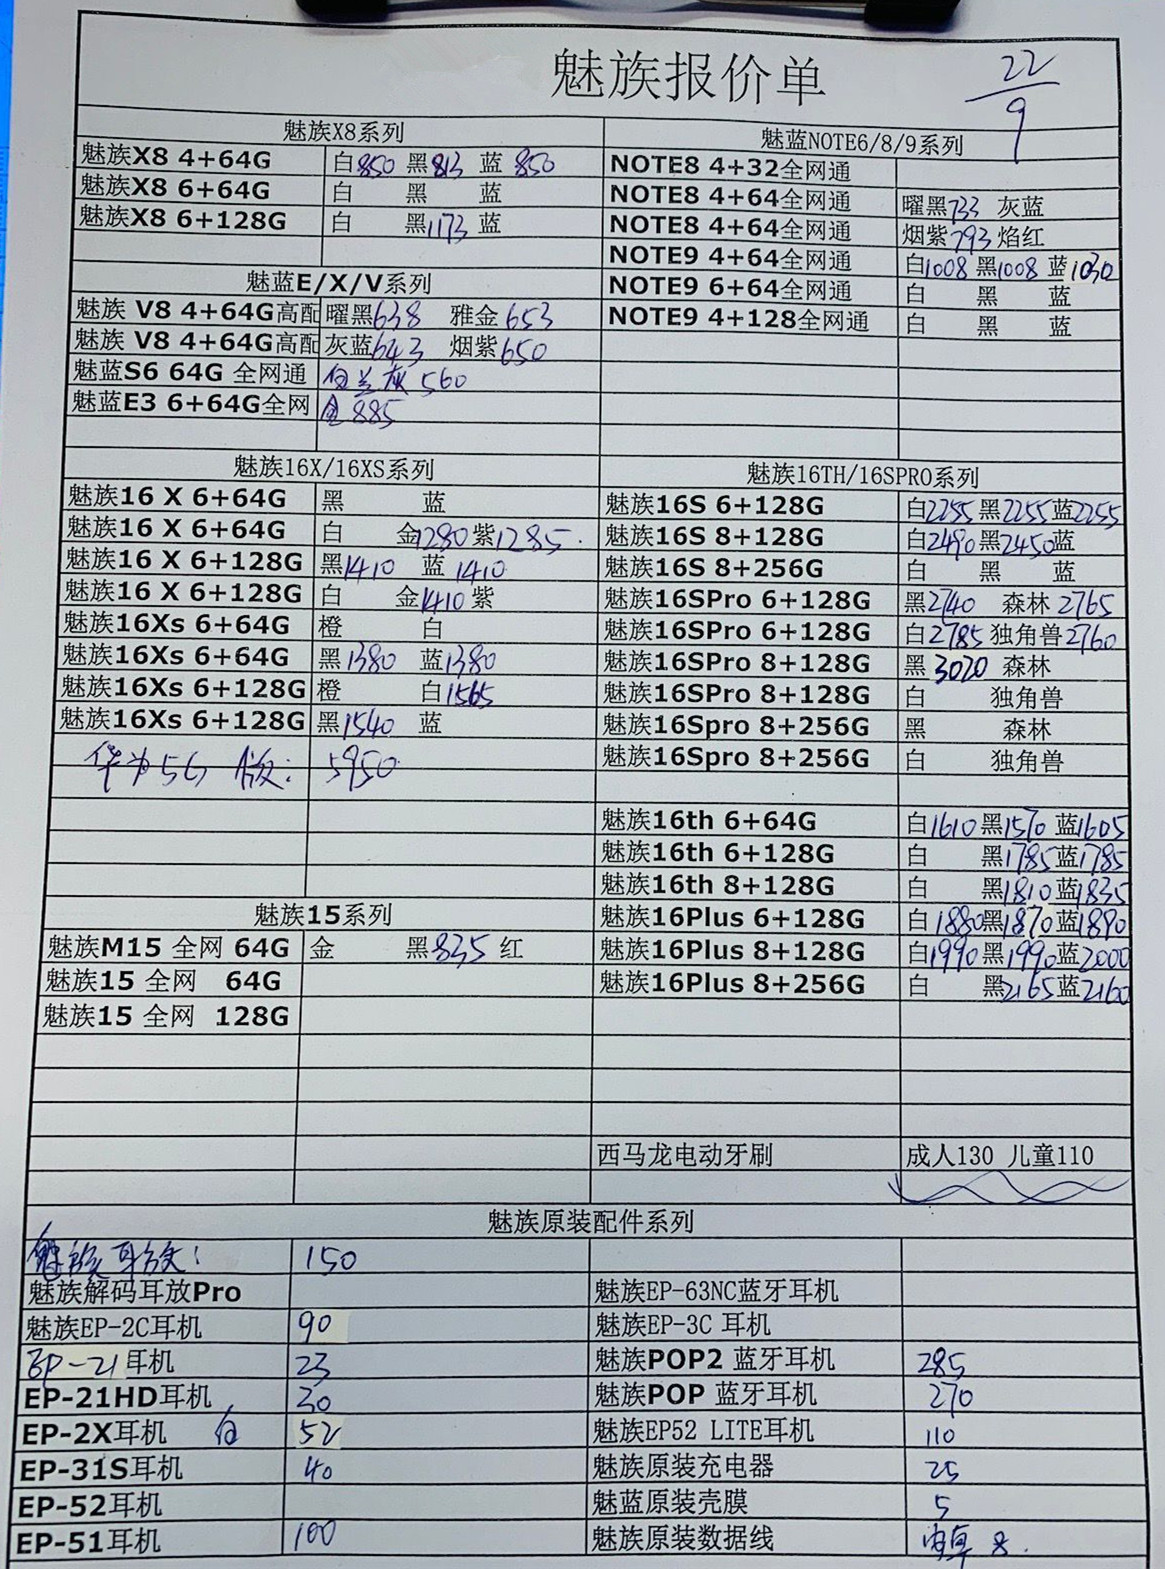 魅族报价单
22/9
魅族X8系列
魅族X8 4+64G 白850 黑813 蓝850
魅族X8 6+64G 白 黑 蓝
魅族X8 6+128G 白 黑1173 蓝
魅蓝E/X/V系列
魅族 V8 4+64G高配 曜黑638 雅金653
魅族 V8 4+64G高配 灰蓝643 烟紫650
魅蓝S6 64G 全网通 白兰灰 560
魅蓝E3 6+64G全网 金885
魅蓝NOTE6/8/9系列
NOTE8 4+32全网通
NOTE8 4+64全网通 曜黑733 灰蓝
NOTE8 4+64全网通 烟紫793 焰红
NOTE9 4+64全网通 白1008 黑1008 蓝1030
NOTE9 6+64全网通 白 黑 蓝
NOTE9 4+128全网通 白 黑 蓝
魅族16X/16XS系列
魅族16 X 6+64G 黑 蓝
魅族16 X 6+64G 白 金1280 紫1285
魅族16 X 6+128G 黑1410 蓝1410
魅族16 X 6+128G 白 金1410 紫
魅族16Xs 6+64G 橙 白
魅族16Xs 6+64G 黑1380 蓝1380
魅族16Xs 6+128G 橙 白1565
魅族16Xs 6+128G 黑1540 蓝
华为5G 版: 5950
魅族16TH/16SPRO系列
魅族16S 6+128G 白2255 黑2255 蓝2255
魅族16S 8+128G 白2490 黑2450 蓝
魅族16S 8+256G 白 黑 蓝
魅族16SPro 6+128G 黑2740 森林 2765
魅族16SPro 6+128G 白2785 独角兽2760
魅族16SPro 8+128G 黑 3020 森林
魅族16SPro 8+128G 白 独角兽
魅族16Spro 8+256G 黑 森林
魅族16Spro 8+256G 白 独角兽
魅族16th 6+64G 白1610 黑1570 蓝1605
魅族16th 6+128G 白 黑1785 蓝1785
魅族16th 8+128G 白 黑1810 蓝1835
魅族16Plus 6+128G 白1880 黑1870 蓝1890
魅族16Plus 8+128G 白1990 黑1990 蓝2000
魅族16Plus 8+256G 白 黑2165 蓝2160
魅族15系列
魅族M15 全网 64G 金 黑835 红
魅族15 全网 64G
魅族15 全网 128G
西马龙电动牙刷 成人130 儿童110
魅族原装配件系列
魅族耳放: 150
魅族解码耳放Pro 魅族EP-63NC蓝牙耳机
魅族EP-2C耳机 90 魅族EP-3C 耳机
EP-21耳机 23 魅族POP2 蓝牙耳机 285
EP-21HD耳机 30 魅族POP 蓝牙耳机 270
EP-2X耳机 白 52 魅族EP52 LITE耳机 110
EP-31S耳机 40 魅族原装充电器 25
EP-52耳机 魅蓝原装壳膜 5
EP-51耳机 100 魅族原装数据线 安卓 8.